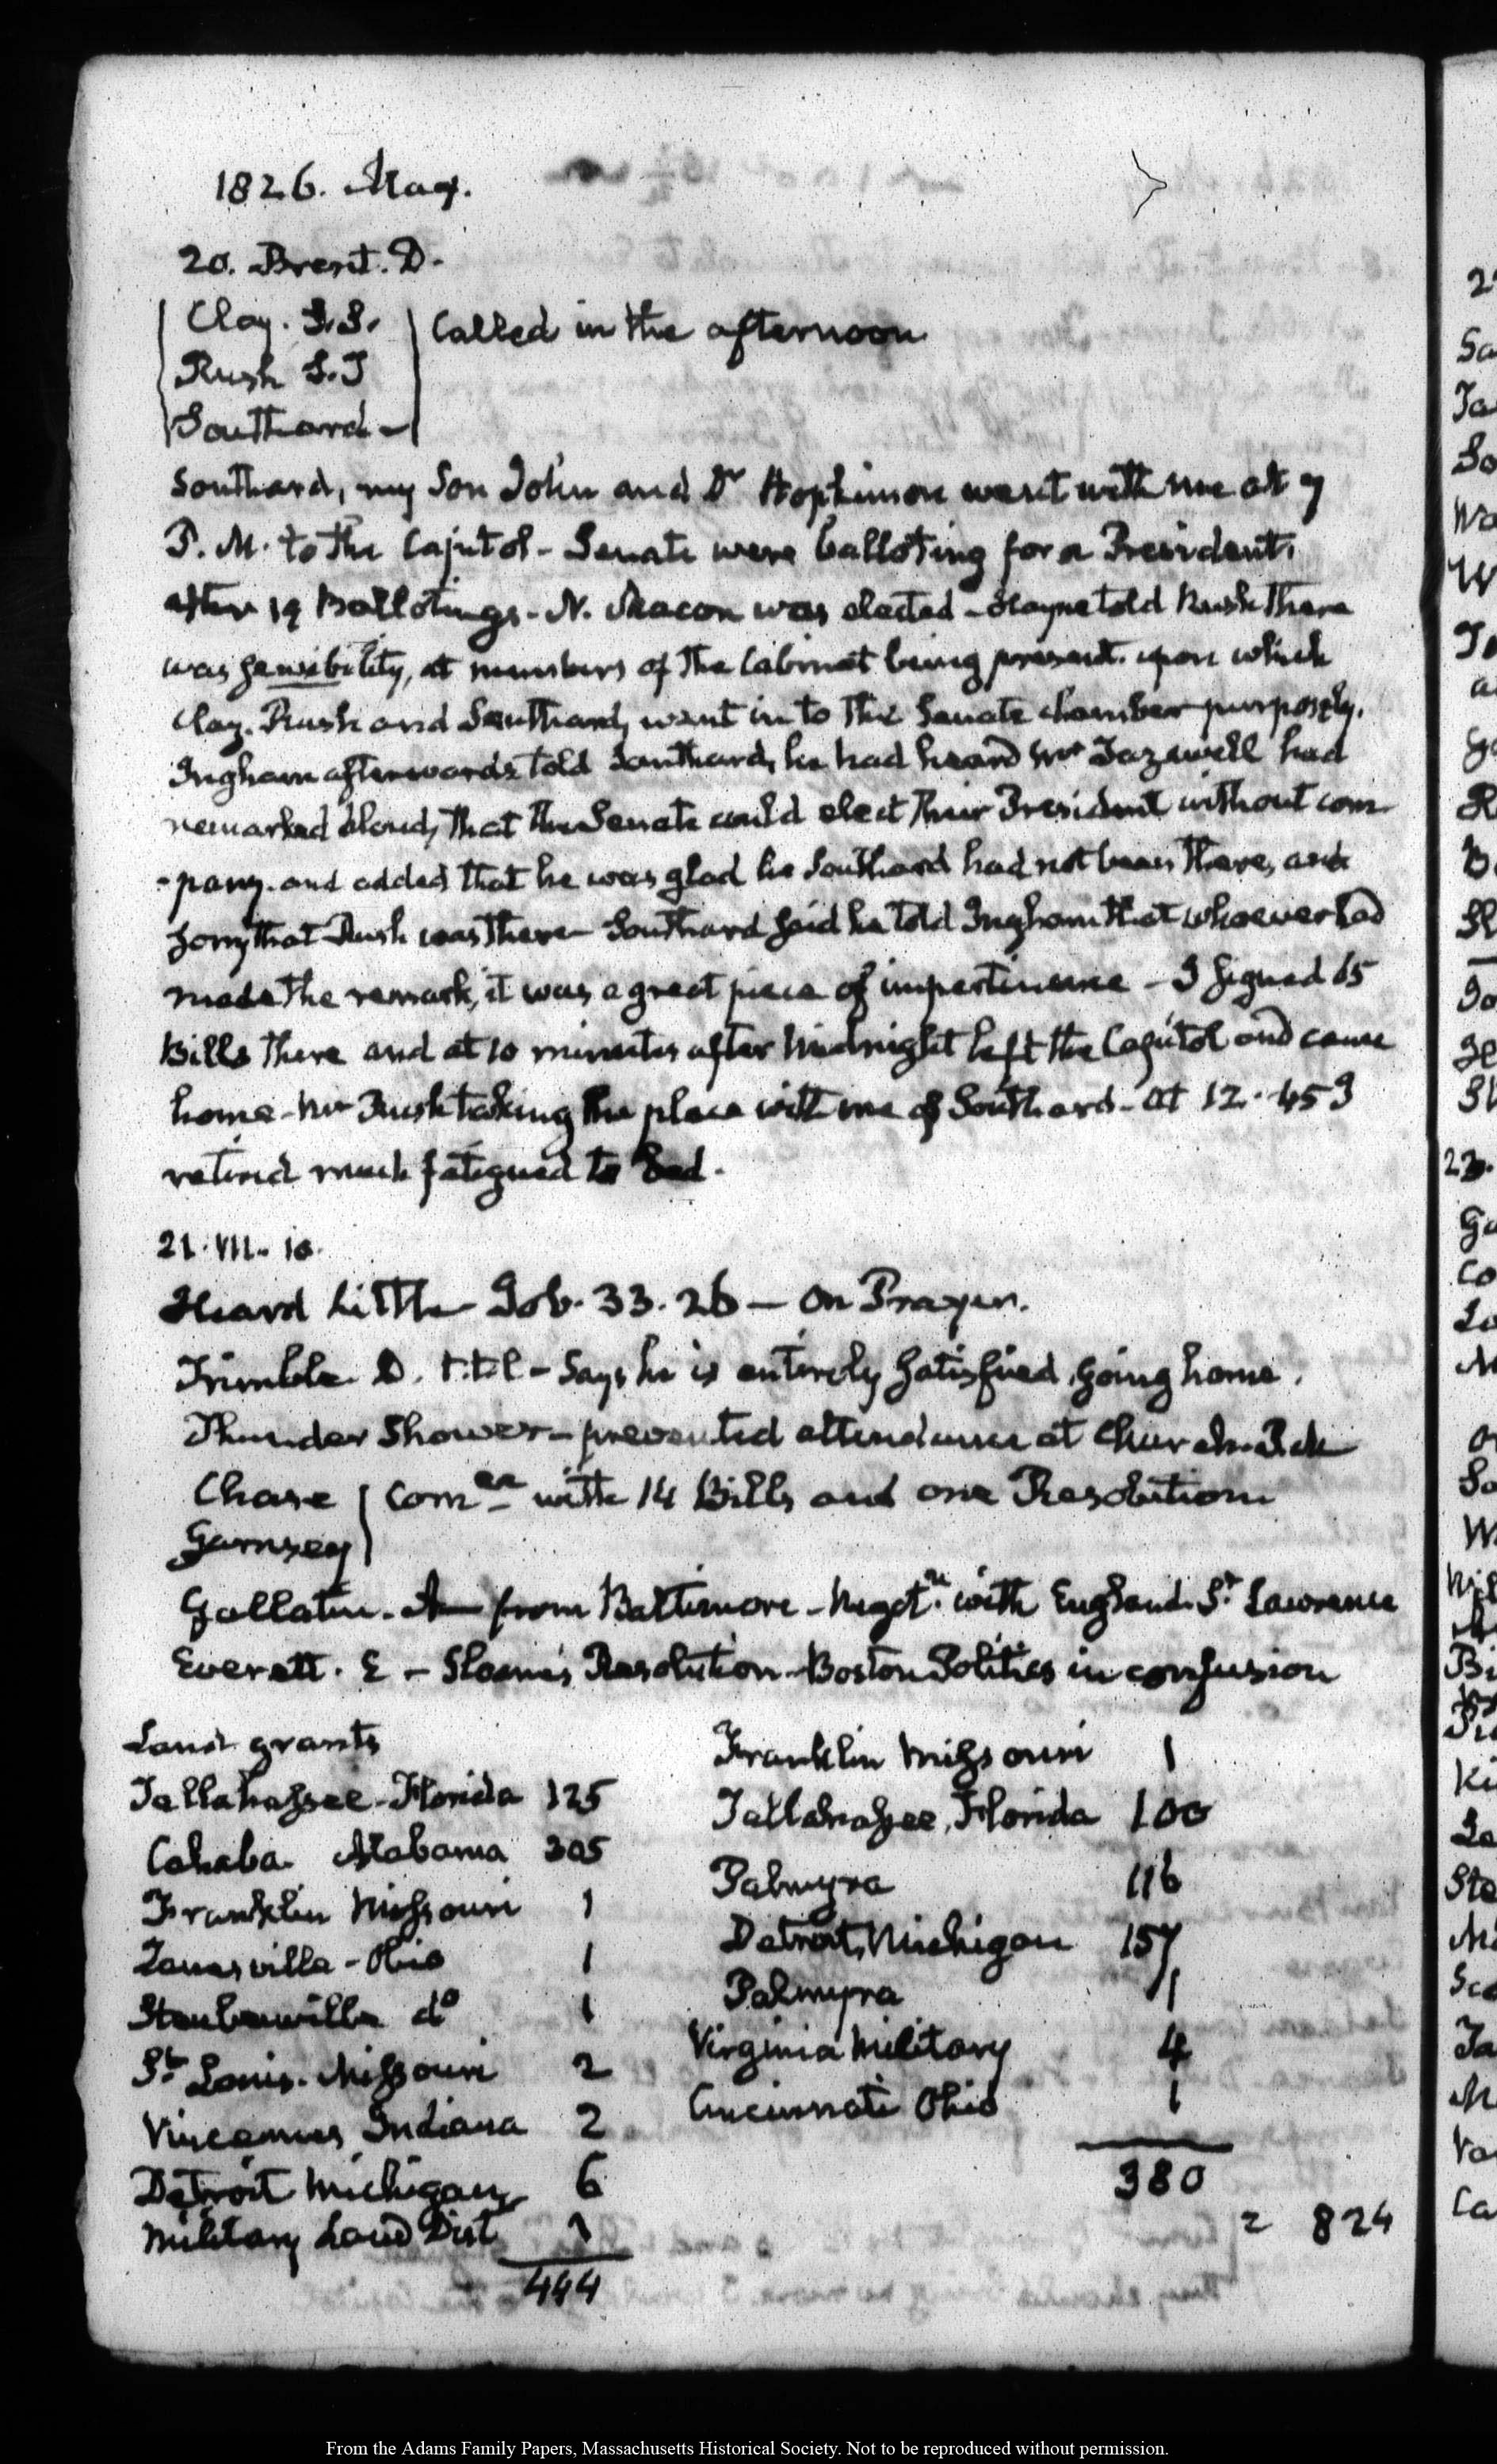 1826. May.
20. Brent. D.
Clay. S.S.
Rush S.T
Southard -
Called in the afternoon
Southard, my Son John and Dr Hopkinson went with me at 7
P. M. to the Capitol - Senate were balloting for a President,
after 19 Ballotings - N. Macon was elected - Hayne told Rush there
was sensibility, at members of the Cabinet being present. upon which
Clay. Rush and Southard, went in to the Senate chamber purposely.
Ingham afterwards told Southard, he had heard Mr Tazewell had
remarked aloud, that the Senate could elect their President without com
-pany. and added that he was glad he Southard had not been there, and
sorry that Rush was there - Southard said he told Ingham that whoever had
made the remark, it was a great piece of impertinence - I signed 65
Bills there and at 10 minutes after Midnight left the Capitol and came
home - Mr Rush taking the place with me of Southard - At 12. 45
retired much fatigued to Bed.
21. VII. 10.
Heard Little Job. 33. 26 - On Prayer.
Trimble. D. t.t.l - Says he is entirely satisfied, going home.
Thunder Shower - prevented attendance at Church.
Chase
Garnsey
Comee with 14 Bills and one Resolution
Gallatin. A from Baltimore - Negotn. with England. St. Lawrence
Everett. E - Sloane's Resolution - Boston Politics in confusion
Land grants
Tallahassee - Florida 125
Cahaba Alabama 305
Franklin Missouri 1
Zanesville - Ohio 1
Steubenville do 1
St Louis. Missouri 2
Vincennes Indiana 2
Detroit Michigan 6
Military Land Dist 1
444
Franklin Missouri 1
Tallahassee, Florida 100
Palmyra 116
Detroit, Michigan 157
Palmyra 1
Virginia Military 4
Cincinnati Ohio 1
380
= 824
From the Adams Family Papers, Massachusetts Historical Society. Not to be reproduced without permission.